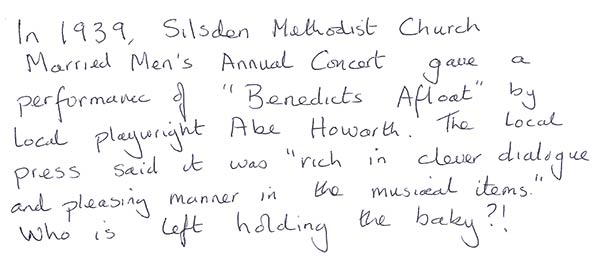 In 1939, Silsden Methodist Church
Married Men's Annual Concert gave a
performance of "Benedicts Afloat" by
local playwright Abe Howarth. The local
press said it was "rich in clever dialogue
and pleasing manner in the musical items."
Who is left holding the baby?!